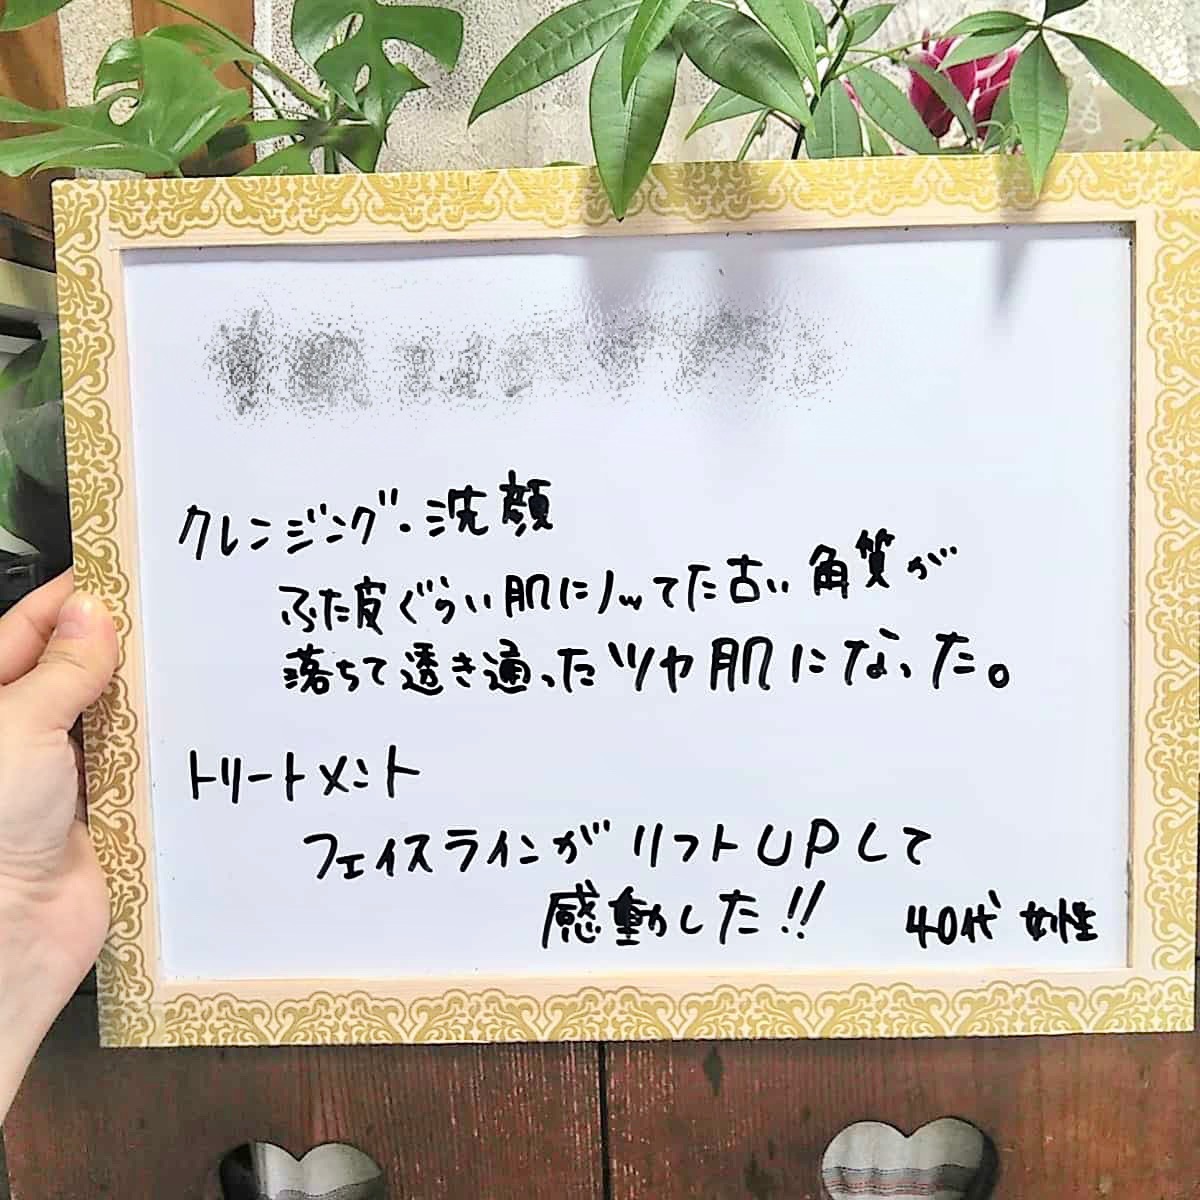 クレンジング・洗顔
ふた皮ぐらい肌にノってた古い角質が
落ちて透き通ったツヤ肌になった。
トリートメント
フェイスラインがリフトUPして
感動した!!
40代 女性